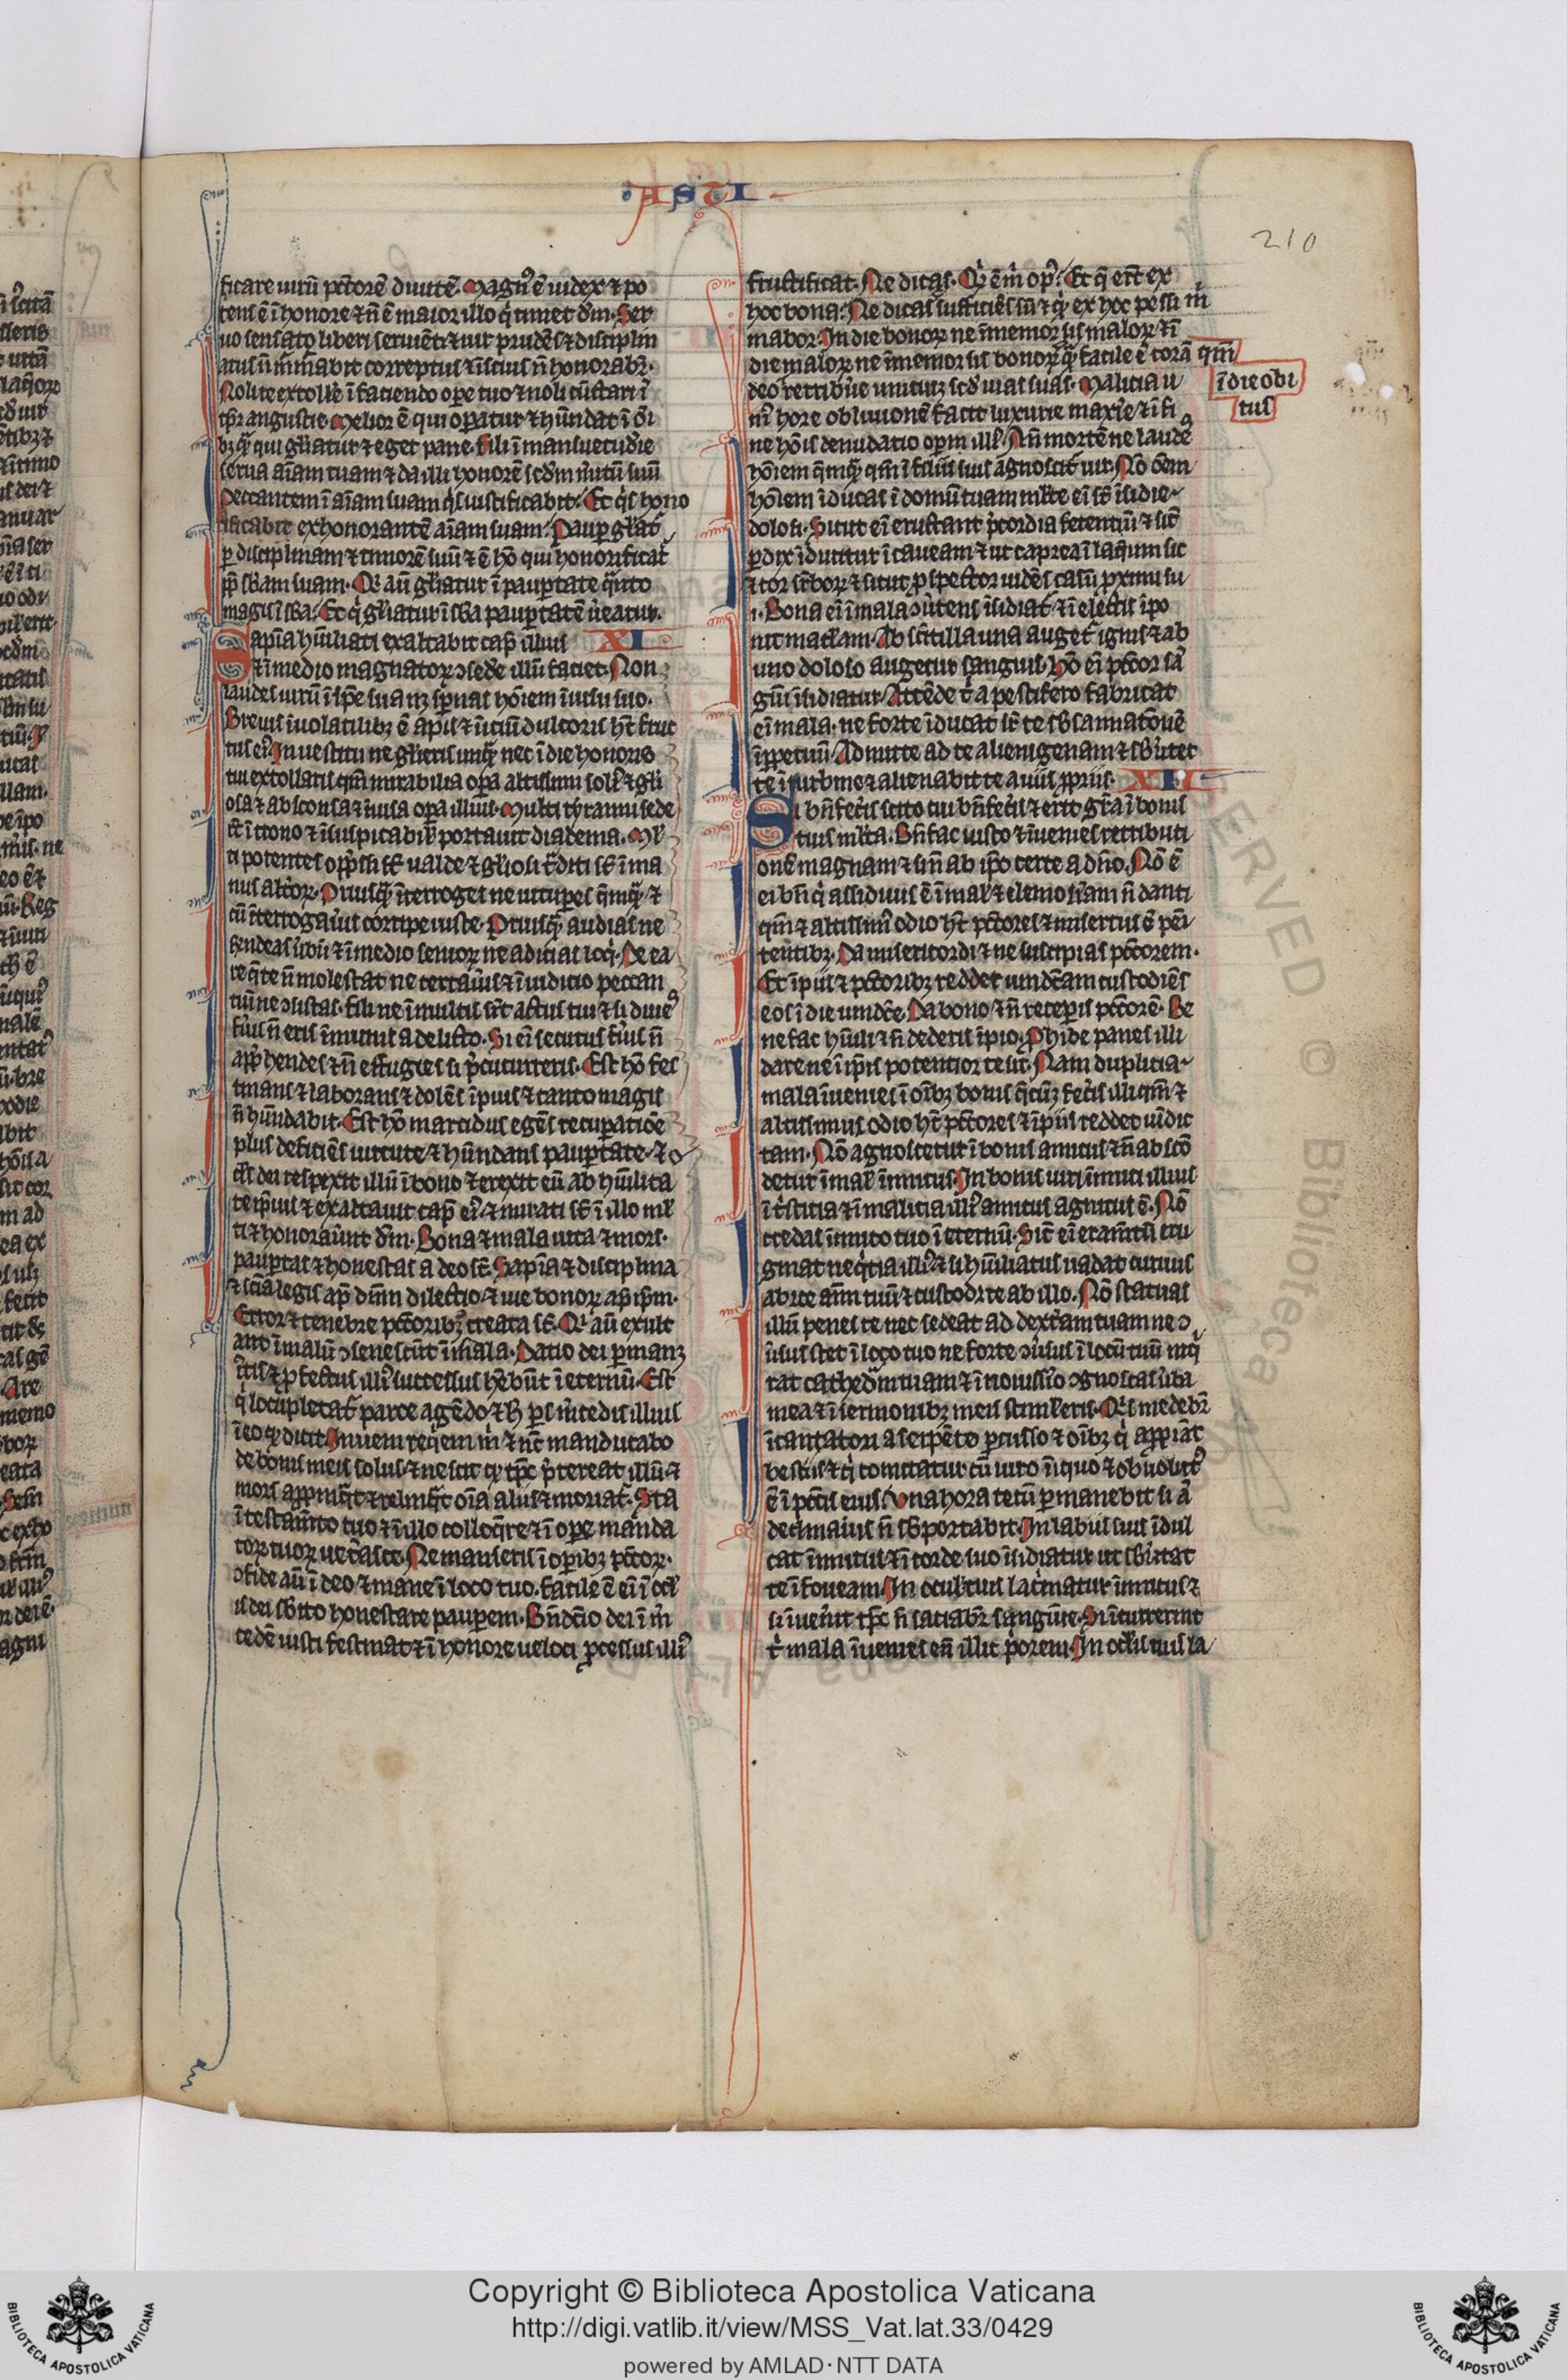 ASTI
210
ficare uirū pctorē diuitē. Magn᾽ ē iudex ⁊ po
tens ē ī honore ⁊ n̄ ē maior illo q̇ timet dm̄. Ser
uo sensato liberi seruiēt ⁊ uir prudēs ⁊ disciplin
atus n̄ m̄mabit correptus ⁊ īscius n̄ honorabr̄.
Noli te extollē ī faciendo opere tuo ⁊ noli cūctari ī
tp̄r angustie. Melior ē qui operatur ⁊ hūndat ī oī
bȝ qᷓ qui gl̄iatur ⁊ eget pane. Fili ī mansuetudīe
serua aīam tuam ⁊ da illi honorē scdm m̄itū suū
Peccantem ī aīam suam qis iustificabit? Et qis hono
rificabit exhonorantē aīam suam? Paup gl̄iat᷑
ꝑ disciplinam ⁊ timorē suū ⁊ ē hō qui honorificat᷑
pp̄ sb̄am suam. Qi aū gl̄iatur ī paupertate qᷓnto
magis ī sb̄a? Et q̇ gl̄iatur ī sb̄a paupertatē ūeatur.
Sapīa hūiliati exaltabit cap̄ illius XI
⁊ ī medio magnatoꝝ ɔsede illū faciet. Non
laudes uirū ī spē sua nȝ sp̄nas hōiem ī uisu suo.
Breuis ī uolatilibȝ ē apis ⁊ ītiū dulcoris hȝ fruc
tus ei᾽. In uestitu ne gl̄ieris unqᷓ nec ī die honoris
tui extollaris qm̄ mirabilia opera altissimi soli᾽ ⁊ gl̄i
osa ⁊ absconsa ⁊ īuisa opera illius. Multi tyranni sede
rt̄ ī trono ⁊ īsuspicabil᾽ portauit diadema. Ml᾽
ti potentes opp̄ssi st̄ ualde ⁊ gl̄iosi tᷓditi st̄ ī ma
nus alt̄oꝝ. Priusqᷓ īterroges ne uituperes qēmqᷓ ⁊
cū īterrogauis corripe iuste. Priusqᷓ audias ne
rn̄deas ūbū ⁊ ī medio senioꝝ ne adicias loq̇. De ea
re q̄ te n̄ molestat ne certaūis ⁊ ī iudicio peccan
tiū ne ɔsistas. Fili ne ī multis sīt actus tui ⁊ si diues
fūis n̄ eris īmunis a delicto. Si eī secutus fūis n̄
appͥhendes ⁊ n̄ effugies si p̄cucurreris. Est hō fes
tinans ⁊ laborans ⁊ dolēs īpius ⁊ tanto magis
n̄ hūndabit. Est hō marcidus egēs recuperatiōe
plus deficiēs uirtute ⁊ hūndans paupertate ⁊ o
cl̄s dei respexit illū ī bono ⁊ erexit eū ab hūilita
te ip̄ius ⁊ exaltauit cap̄ ei᾽ ⁊ mirati st̄ ī illo ml᾽
ti ⁊ honoraūnt dm̄. Bona ⁊ mala uita ⁊ mors.
paupertas ⁊ honestas a deo st̄. Sapīa ⁊ disciplina
⁊ scīa legis ap̄ dūm dilectio ⁊ uie bonoꝝ ap̄ ip̄m.
Error ⁊ tenebre pctoribȝ creata st̄. Qi aū exult
ant ī malū ɔsenescūt ī mala. Datio dei permanȝ
iustis ⁊ ꝓfectus illi᾽ successus hēbūt ī eternū. Est
q̇ locupletat᷑ parce agēdo ⁊ h̄ ꝑs m̄cedis illius
ī eo qꝫ dicit. Inueni req̇em m̄ ⁊ nc̄ manducabo
de bonis meis solus ⁊ nescit qꝫ tp̄s p̄tereat illū ⁊
mors appinqt̄ ⁊ relinqt̄ oīa aliis ⁊ moriat᷑. Sta
ī testam̄to tuo ⁊ ī illo colloq̄re ⁊ ī opere manda
toꝝ tuoꝝ uet̄asce. Ne manseris ī operibȝ pctoꝝ.
ɔfide aū ī deo ⁊ mane ī loco tuo. Facile ē eī ī ocl᾽
is dei sb̄ito honestare pauperem. Bn̄dcīo dei ī m̄
cedē iusti festinat ⁊ ī honore ueloci ꝓcessus illi᾽
fructificat. Ne dicas. Q̇ ē m̄ op᾽? Et q̄ ert̄ ex
hoc bona? Ne dicas sufficiēs sū ⁊ q̇ ex hoc pessi m̄
mabor. In die bonoꝝ ne īmemor sis maloꝝ ⁊ ī
die maloꝝ ne īmemor sis bonoꝝ qᷓ facile ē corā qm̄
deo retribūe unicuiȝ scd̄ uias suas. Malicia u
īdie obi
tus
ni᾽ hore obliuionē facit luxurie maxīe ⁊ ī fi
ne hōis denudatio operm illi᾽. An̄ mortē ne laudes
hōiem qēmqᷓ qm̄ ī filiis suis agnoscit᷑ uir. Nō oēm
hōiem īducas ī domū tuam ml̄te eī st̄ īsidie
dolosi. Sicut eī eructant p̄cordia fetentiū ⁊ sic̄
perdix īducitur ī caueam ⁊ ut caprea ī laqum sic
⁊ cor suꝑboꝝ ⁊ sicut ꝓspector uidēs casū ꝓximi su
i. Bona eī ī mala ɔūtens īsidiat᷑ ⁊ ī electis īpo
nit maclam. Ab scītilla una auget᷑ ignis ⁊ ab
uno doloso augetur sanguis. Hō eī pctor sā
guī īsidiatur. Attēde t̄ a pestifero fabricat
eī mala. ne forte īducat sr̄ te sb̄sannat̄onē
īperpetuū. Admitte ad te alienigenam ⁊ sb̄ūtet
te ī turbine ⁊ alienabit te a uiis ꝓpriis. XII
Si bn̄fecis scito cui bn̄fecis ⁊ erit gr̄a ī bonis
tuis ml̄ta. Bn̄fac iusto ⁊ īuenies retributi
onē magnam ⁊ si n̄ ab ip̄o certe a dn̄o. Nō ē
ei bn̄ q̇ assiduus ē ī mal᾽ ⁊ elemosinam n̄ danti
qm̄ ⁊ altissim᾽ odio hȝ pctores ⁊ misertus ē peī
tentibȝ. Da misericordi ⁊ ne suscipias pctorem.
Et īpiis ⁊ pctoribȝ reddet uindc̄am custodiēs
eos ī die uindc̄e. Da bono ⁊ n̄ receperis pctorē. Be
nefac hūili ⁊ n̄ dederis īpio. Phibe panes illi
dare ne ī ip̄is potentior te sit. Nam duplicia
mala īuenies ī oībȝ bonis q̄cūȝ fecis illi qm̄ ⁊
altissimus odio hȝ pctores ⁊ īpiis reddet uīdic
tam. Nō agnoscetur ī bonis amicus ⁊ n̄ abscō
detur ī mal᾽ īmicus. In bonis uiri īmici illius
ī tͥsticia ⁊ ī malicia illi᾽ amicus agnitus ē. Nō
credas īmico tuo ī eternū. Sic̄ eī eram̄tū eru
ginat neq̇tia illi᾽ ⁊ si hūiliatus uadat curuus
abice aīm tuū ⁊ custodi te ab illo. Nō statuas
illū penes te nec sedeat ad dext̄am tuam ne ɔ
ūsus stet ī loco tuo ne forte ɔūsus ī locū tuū inq̇
rat cathedᷓm tuam ⁊ ī nouissīo ɔgnoscas ūba
mea ⁊ ī sermonibȝ meis stimleris. Qis medebr̄
īcantatori a serpēte percusso ⁊ oībȝ q̇ appiāt
bestiis ⁊ q̇ comitatur cū uiro īiquo ⁊ obuolut᾽
ē ī pctis eius? Vna hora tecū permanebit si aū
declinauis n̄ sb̄portabit. In labiis suis īdul
cat īmicus ⁊ ī corde suo īsidiatur ut sb̄ūtat
te ī foueam. In oculis suis lac̄matur īmicus ⁊
si īuen̄it tp̄s n̄ saciabr̄ sanguīe. Si īcurrerint
t̄ mala īuenies eū illic p̄orem. In ocl̄is suis la
Copyright © Biblioteca Apostolica Vaticana
http://digi.vatlib.it/view/MSS_Vat.lat.33/0429
powered by AMLAD·NTT DATA
BIBLIOTECA APOSTOLICA VATICANA
BIBLIOTECA APOSTOLICA VATICANA